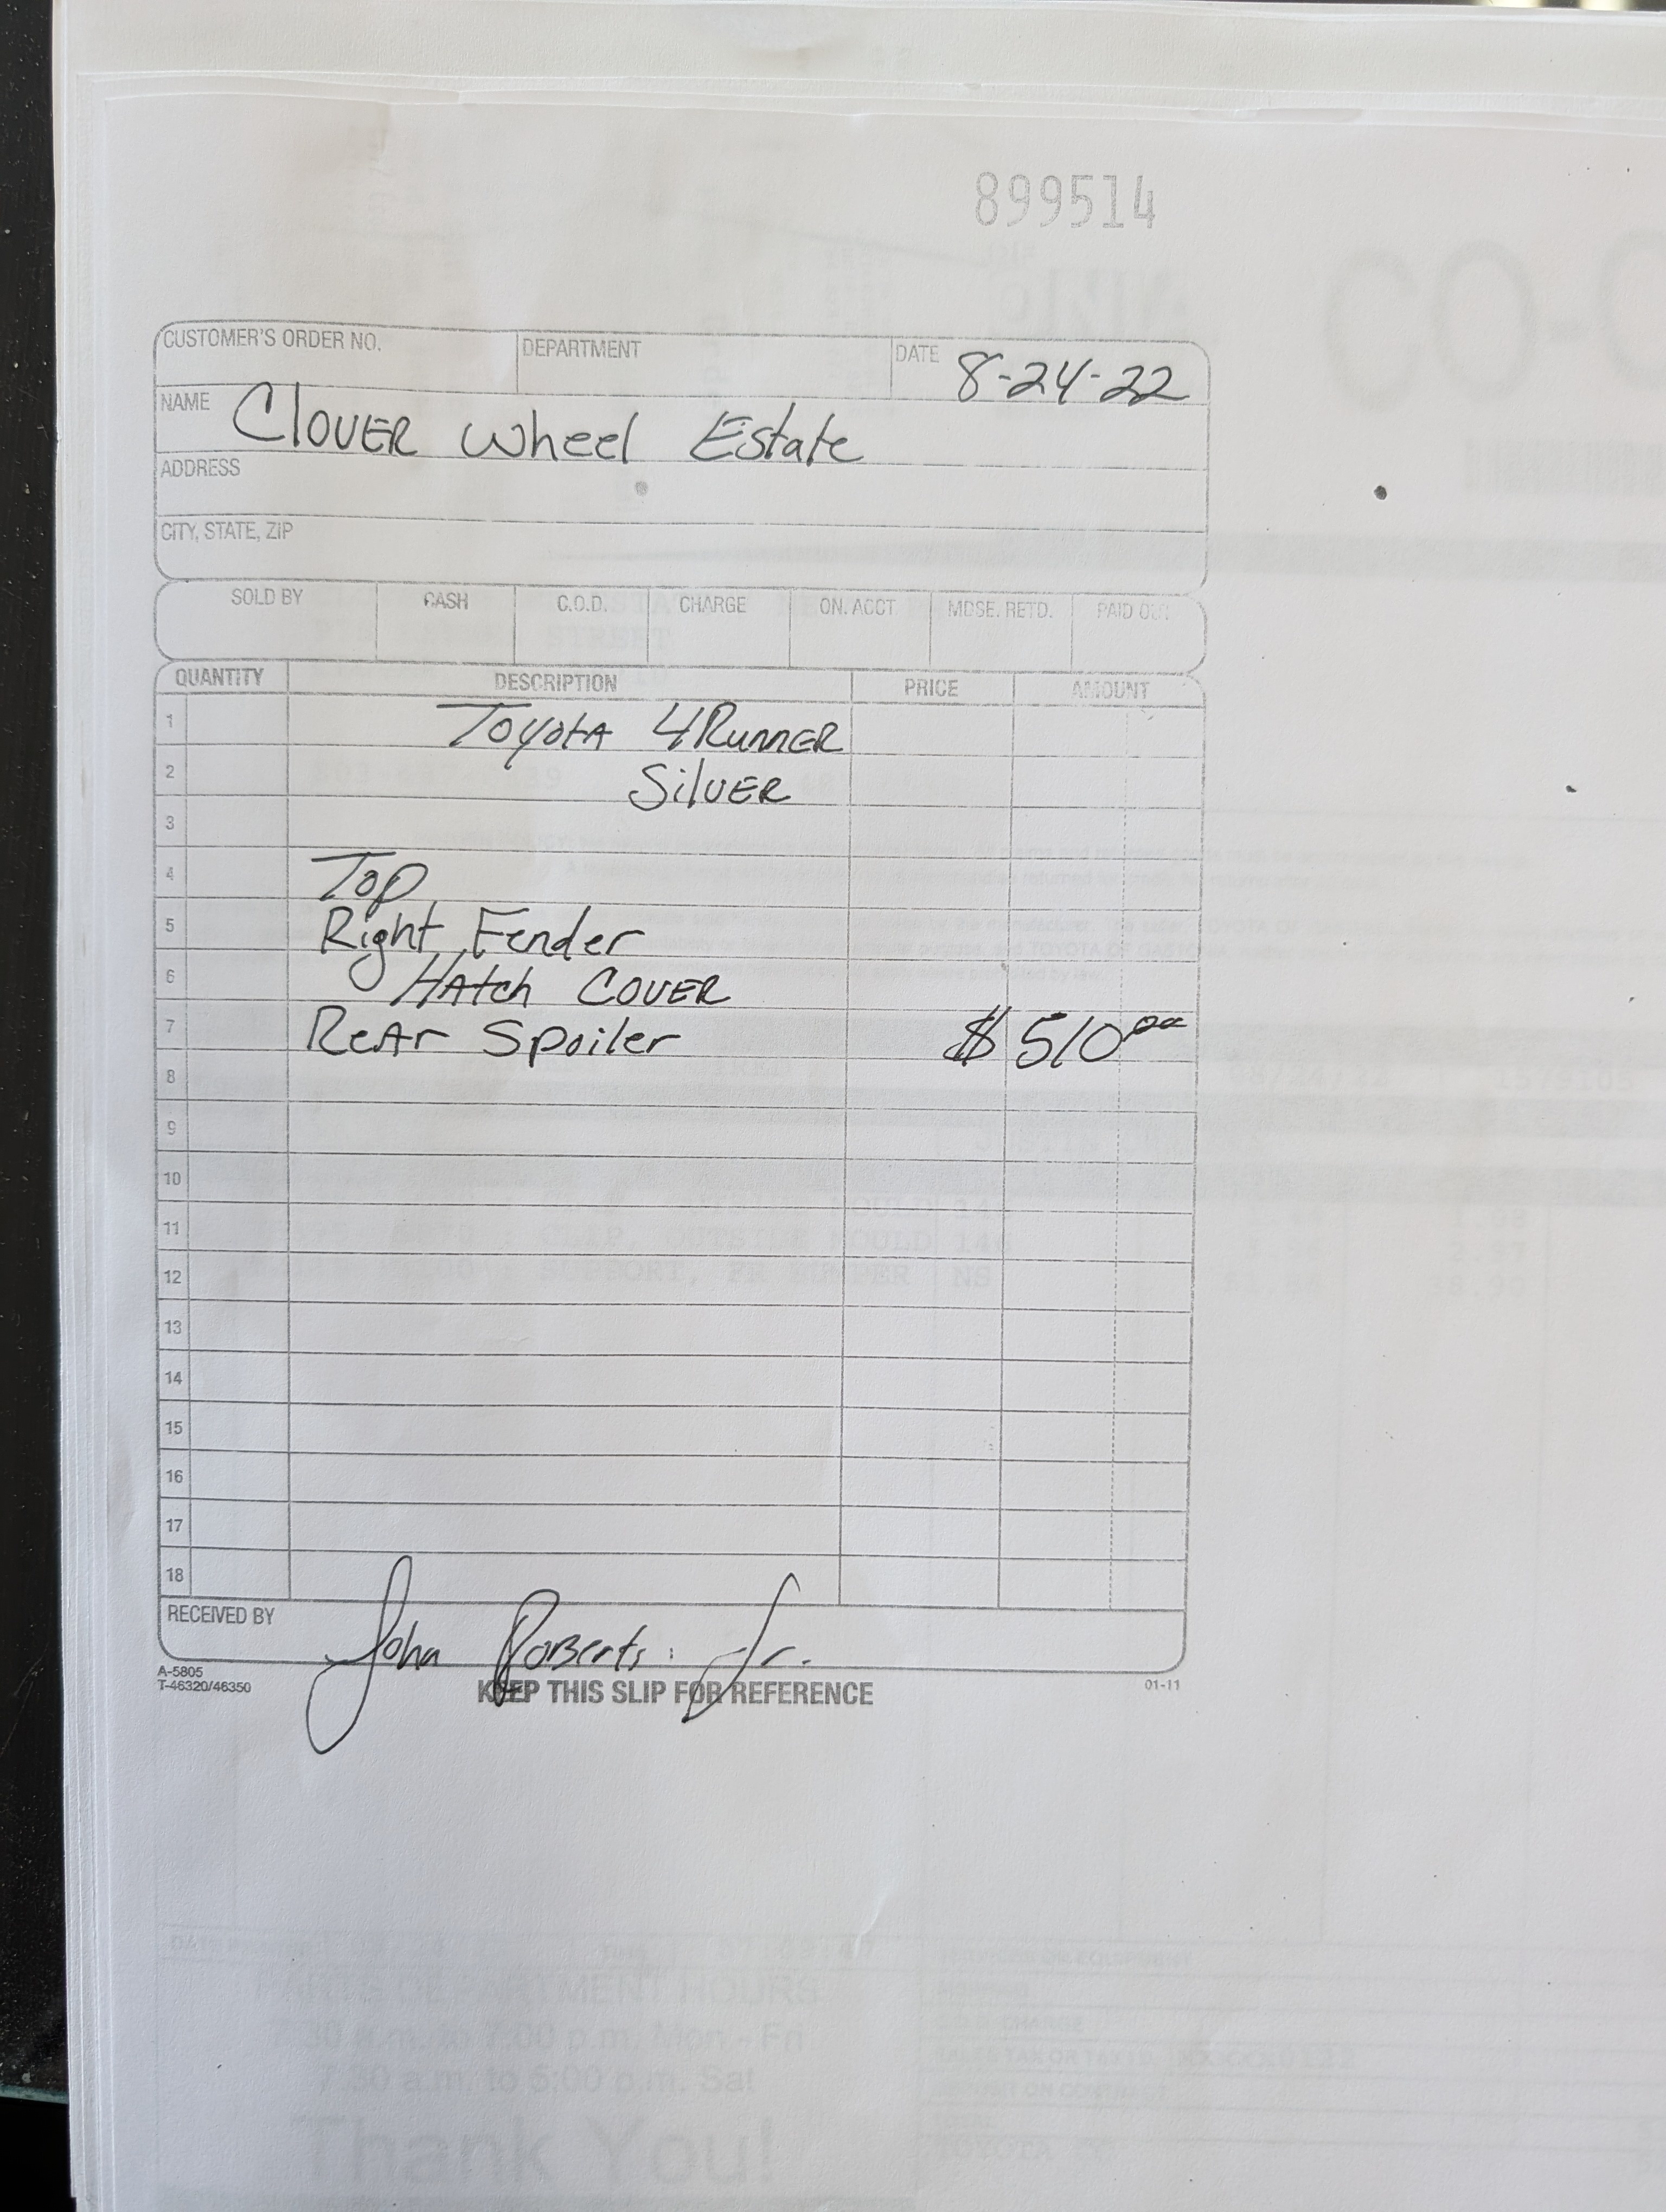 899514
CUSTOMER'S ORDER NO. DEPARTMENT DATE 8-24-22
NAME Clover Wheel Estate
ADDRESS
CITY, STATE, ZIP
SOLD BY CASH C.O.D. CHARGE ON. ACCT MDSE. RETD. PAID OUT
QUANTITY DESCRIPTION PRICE AMOUNT
1 Toyota 4Runner
2 Silver
3
4 Top
5 Right Fender
6 Hatch Cover
7 Rear Spoiler $ 510.00
8
9
10
11
12
13
14
15
16
17
18
RECEIVED BY John Roberts Jr.
A-5805
T-46320/46350
KEEP THIS SLIP FOR REFERENCE
01-11
PARTS DEPARTMENT HOURS
7:30 a.m. to 7:00 p.m. Mon - Fri
7:30 a.m. to 5:00 p.m. Sat
Thank You!